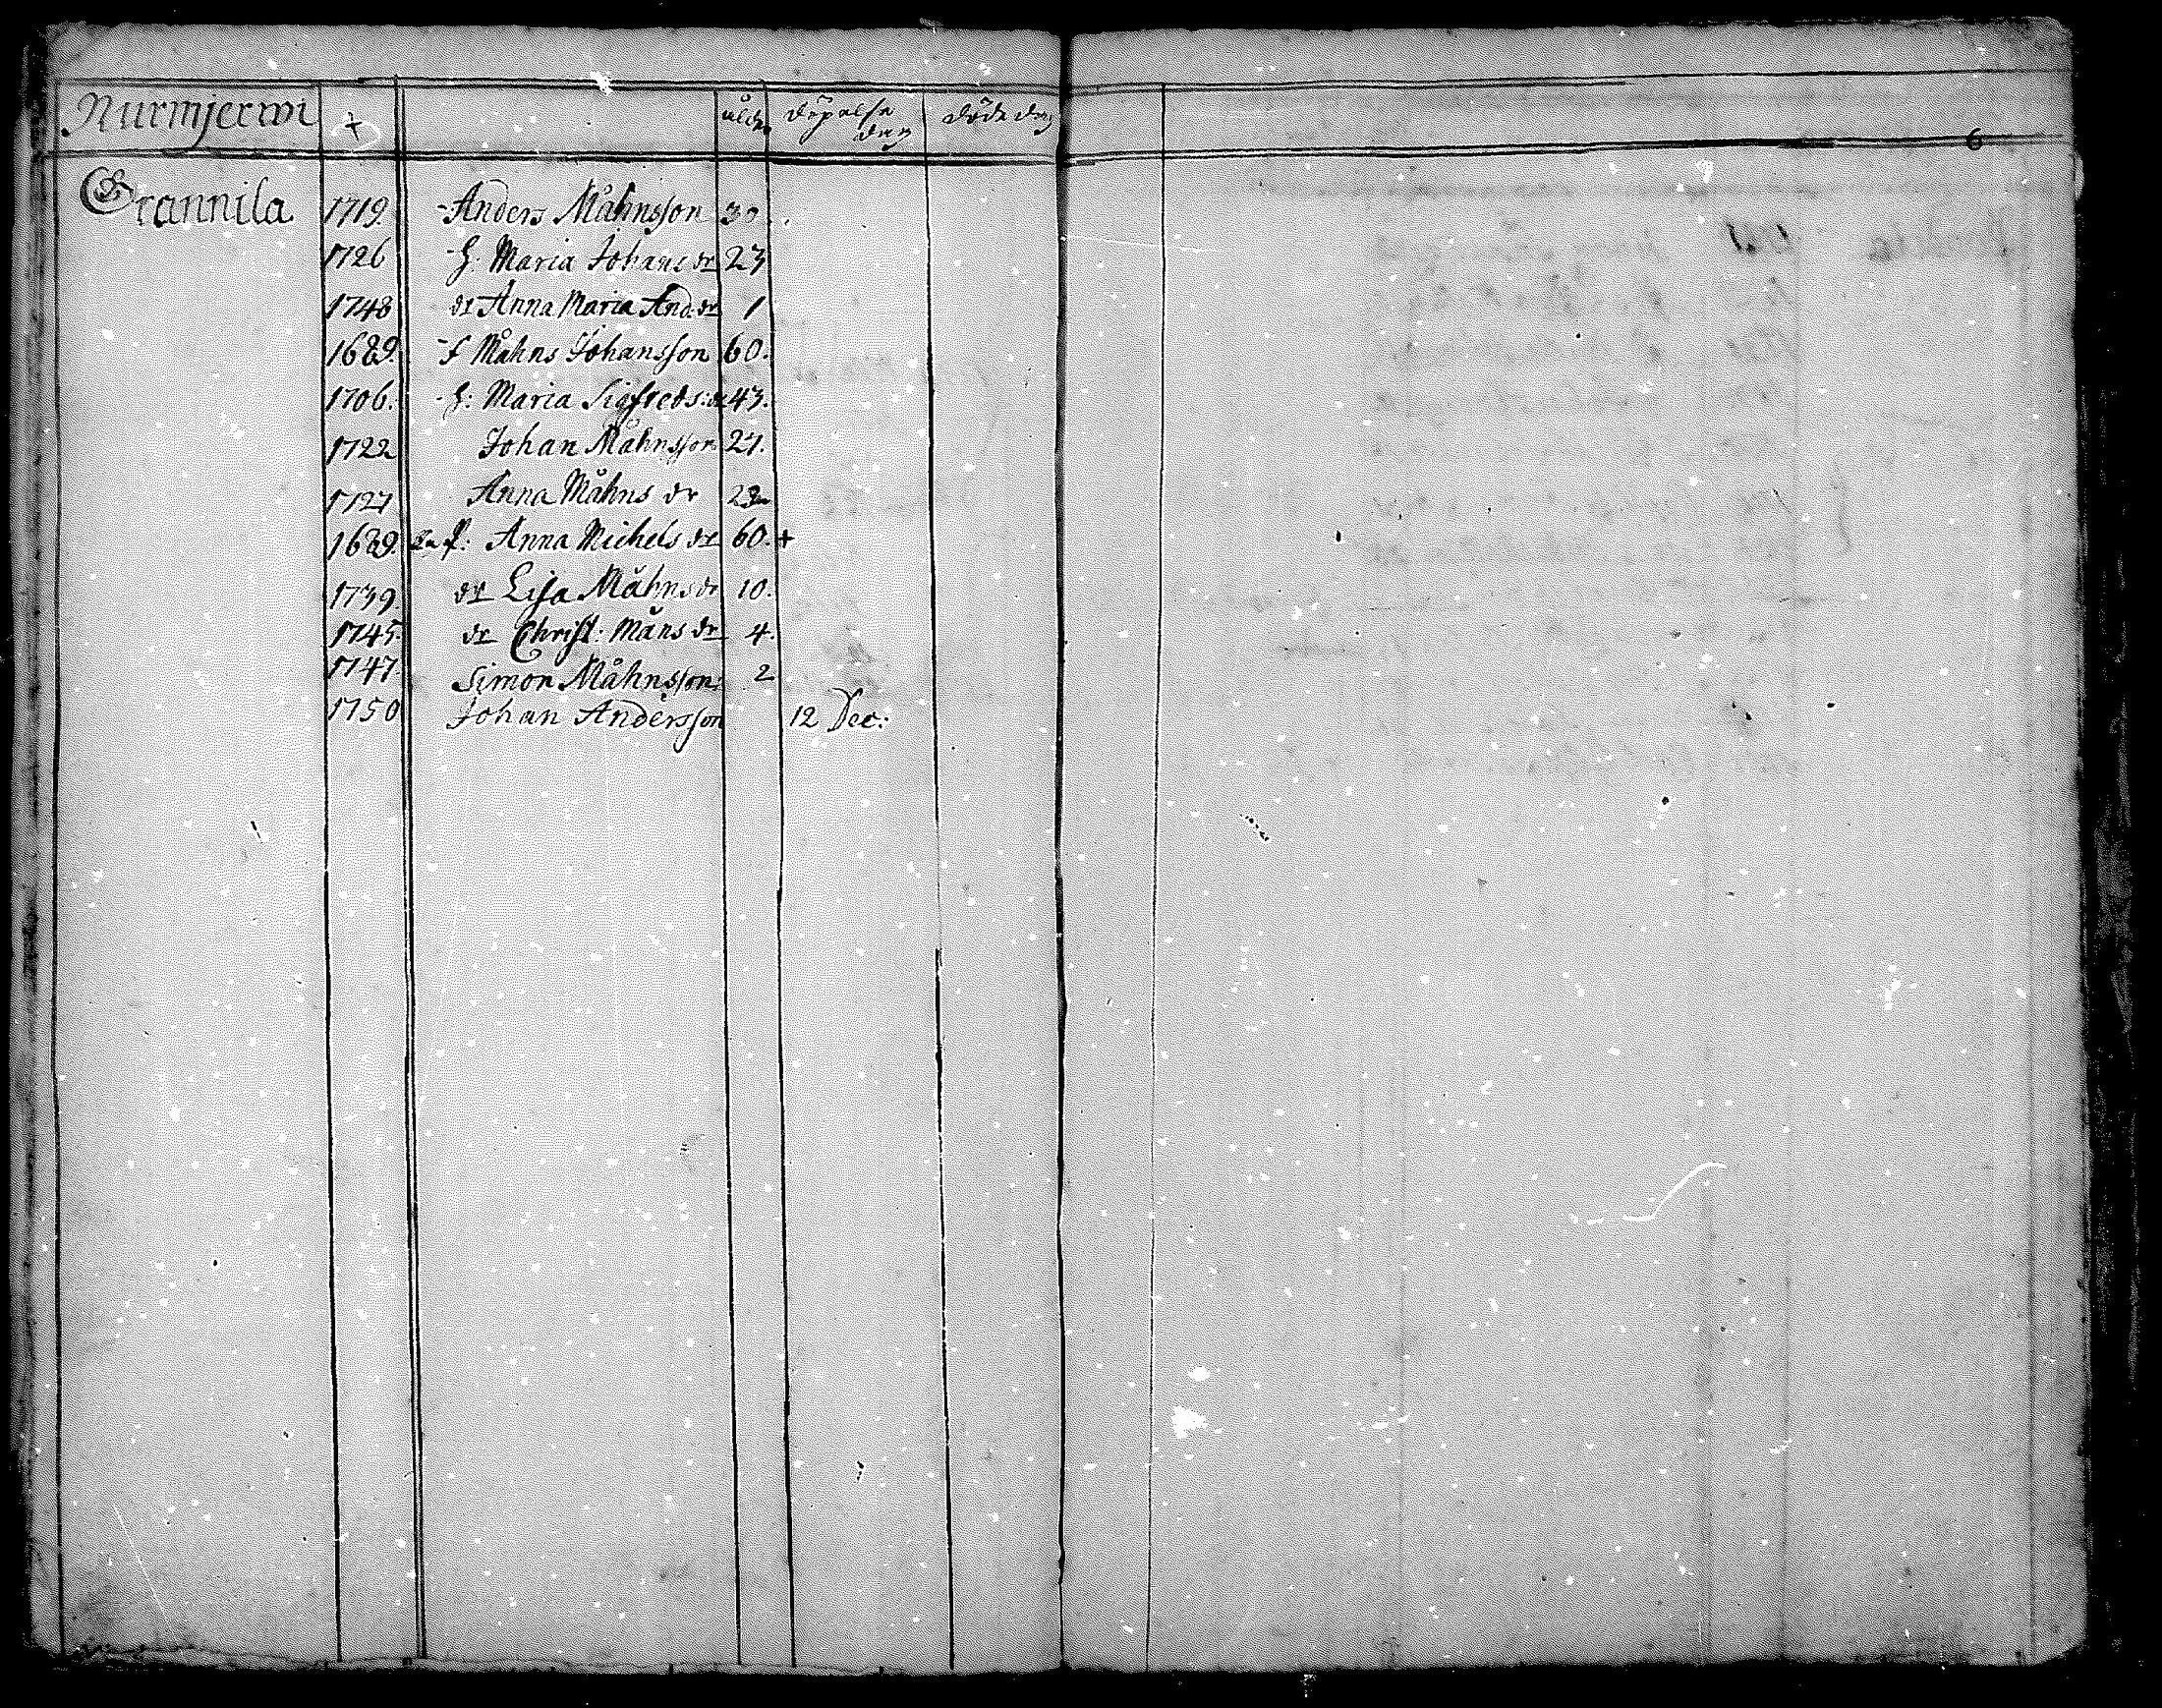 Nurmjerwi + ålder döpelse dag döde dag
6
Grannila 1719. - Anders Måhnsson 30.
1726 - H: Maria Johans dr 23
1748 dr Anna Maria And: dr 1
1689. - f Måhns Johansson 60.
1706. - H: Maria Sigfreds: dr 43.
1722 Johan Måhnsson 27.
1727 Anna Måhns dr 22
1689. Anna Michels dr 60. +
1739. dr Lisa Måhns dr 10.
1745. dr Christ: Måns dr 4.
1747. Simon Måhnsson 2
1750 Johan Andersson 12 Dec: